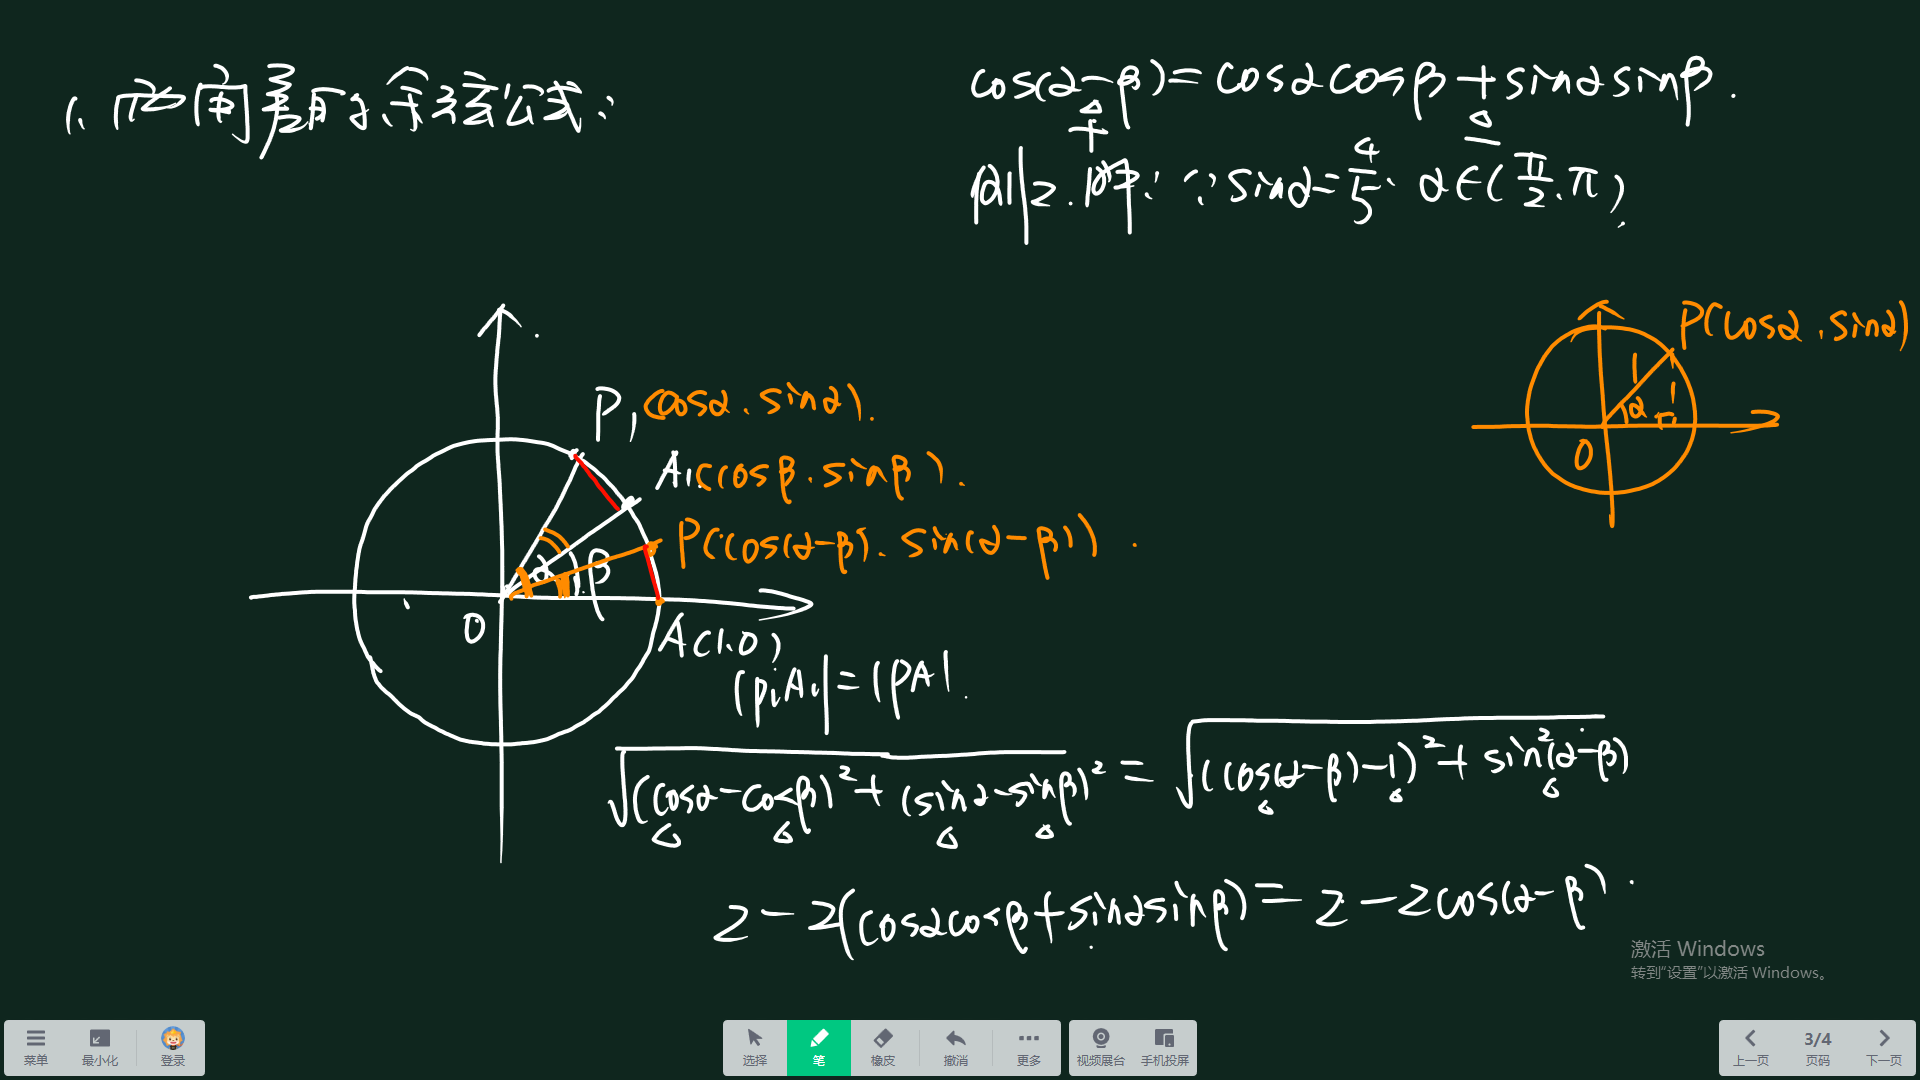 1. 两角差的余弦公式:
cos(α-β)=cosαcosβ+sinαsinβ.
+ -
例2. 解: ∵sinα=4/5. α∈(π/2.π)
P(cosα.sinα)
1
α
O
P₁(cosα.sinα).
A₁(cosβ.sinβ).
P(cos(α-β).sin(α-β))
α β
O
A(1.0)
|P₁A₁|=|PA|.
√((cosα-cosβ)²+(sinα-sinβ)²)=√((cos(α-β)-1)²+sin²(α-β))
2-2(cosαcosβ+sinαsinβ)=2-2cos(α-β).
激活 Windows
转到“设置”以激活 Windows。
菜单 最小化 登录 选择 笔 橡皮 撤消 更多 视频展台 手机投屏 上一页 3/4 页码 下一页